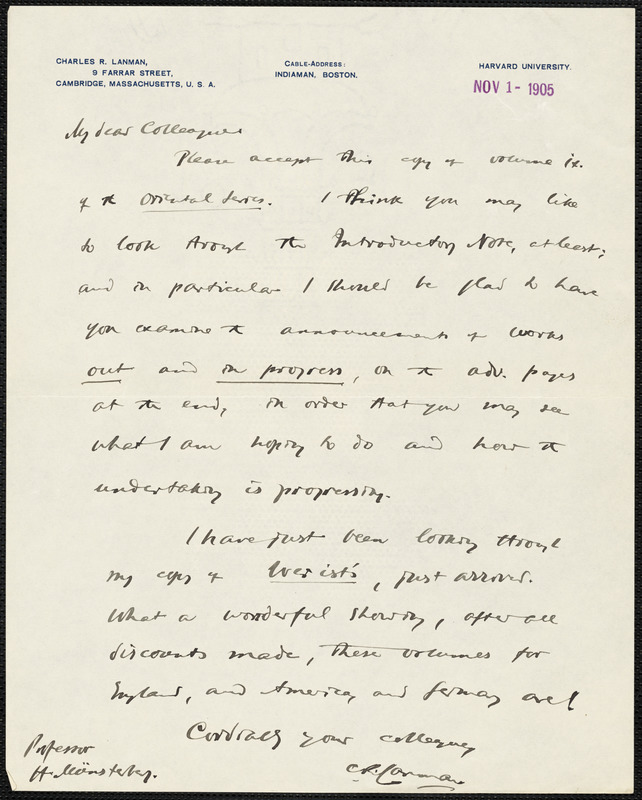 CHARLES R. LANMAN,
9 FARRAR STREET,
CAMBRIDGE, MASSACHUSETTS, U. S. A.
CABLE-ADDRESS:
INDIAMAN, BOSTON.
HARVARD UNIVERSITY.
NOV 1- 1905
My dear Colleague
Please accept this copy of volume ix.
of the Oriental Series. I think you may like
to look through the Introductory Note, at least;
and in particular I should be glad to have
you examine the announcements of works
out and in progress, on the adv. pages
at the end, in order that you may see
what I am hoping to do and how the
undertaking is progressing.
I have just been looking through
my copy of Wer ist's, just arrived.
What a wonderful showing, after all
discounts made, these volumes for
England, and America, and Germany are!
Cordially your colleague,
C.R. Lanman
Professor
H. Münsterberg.